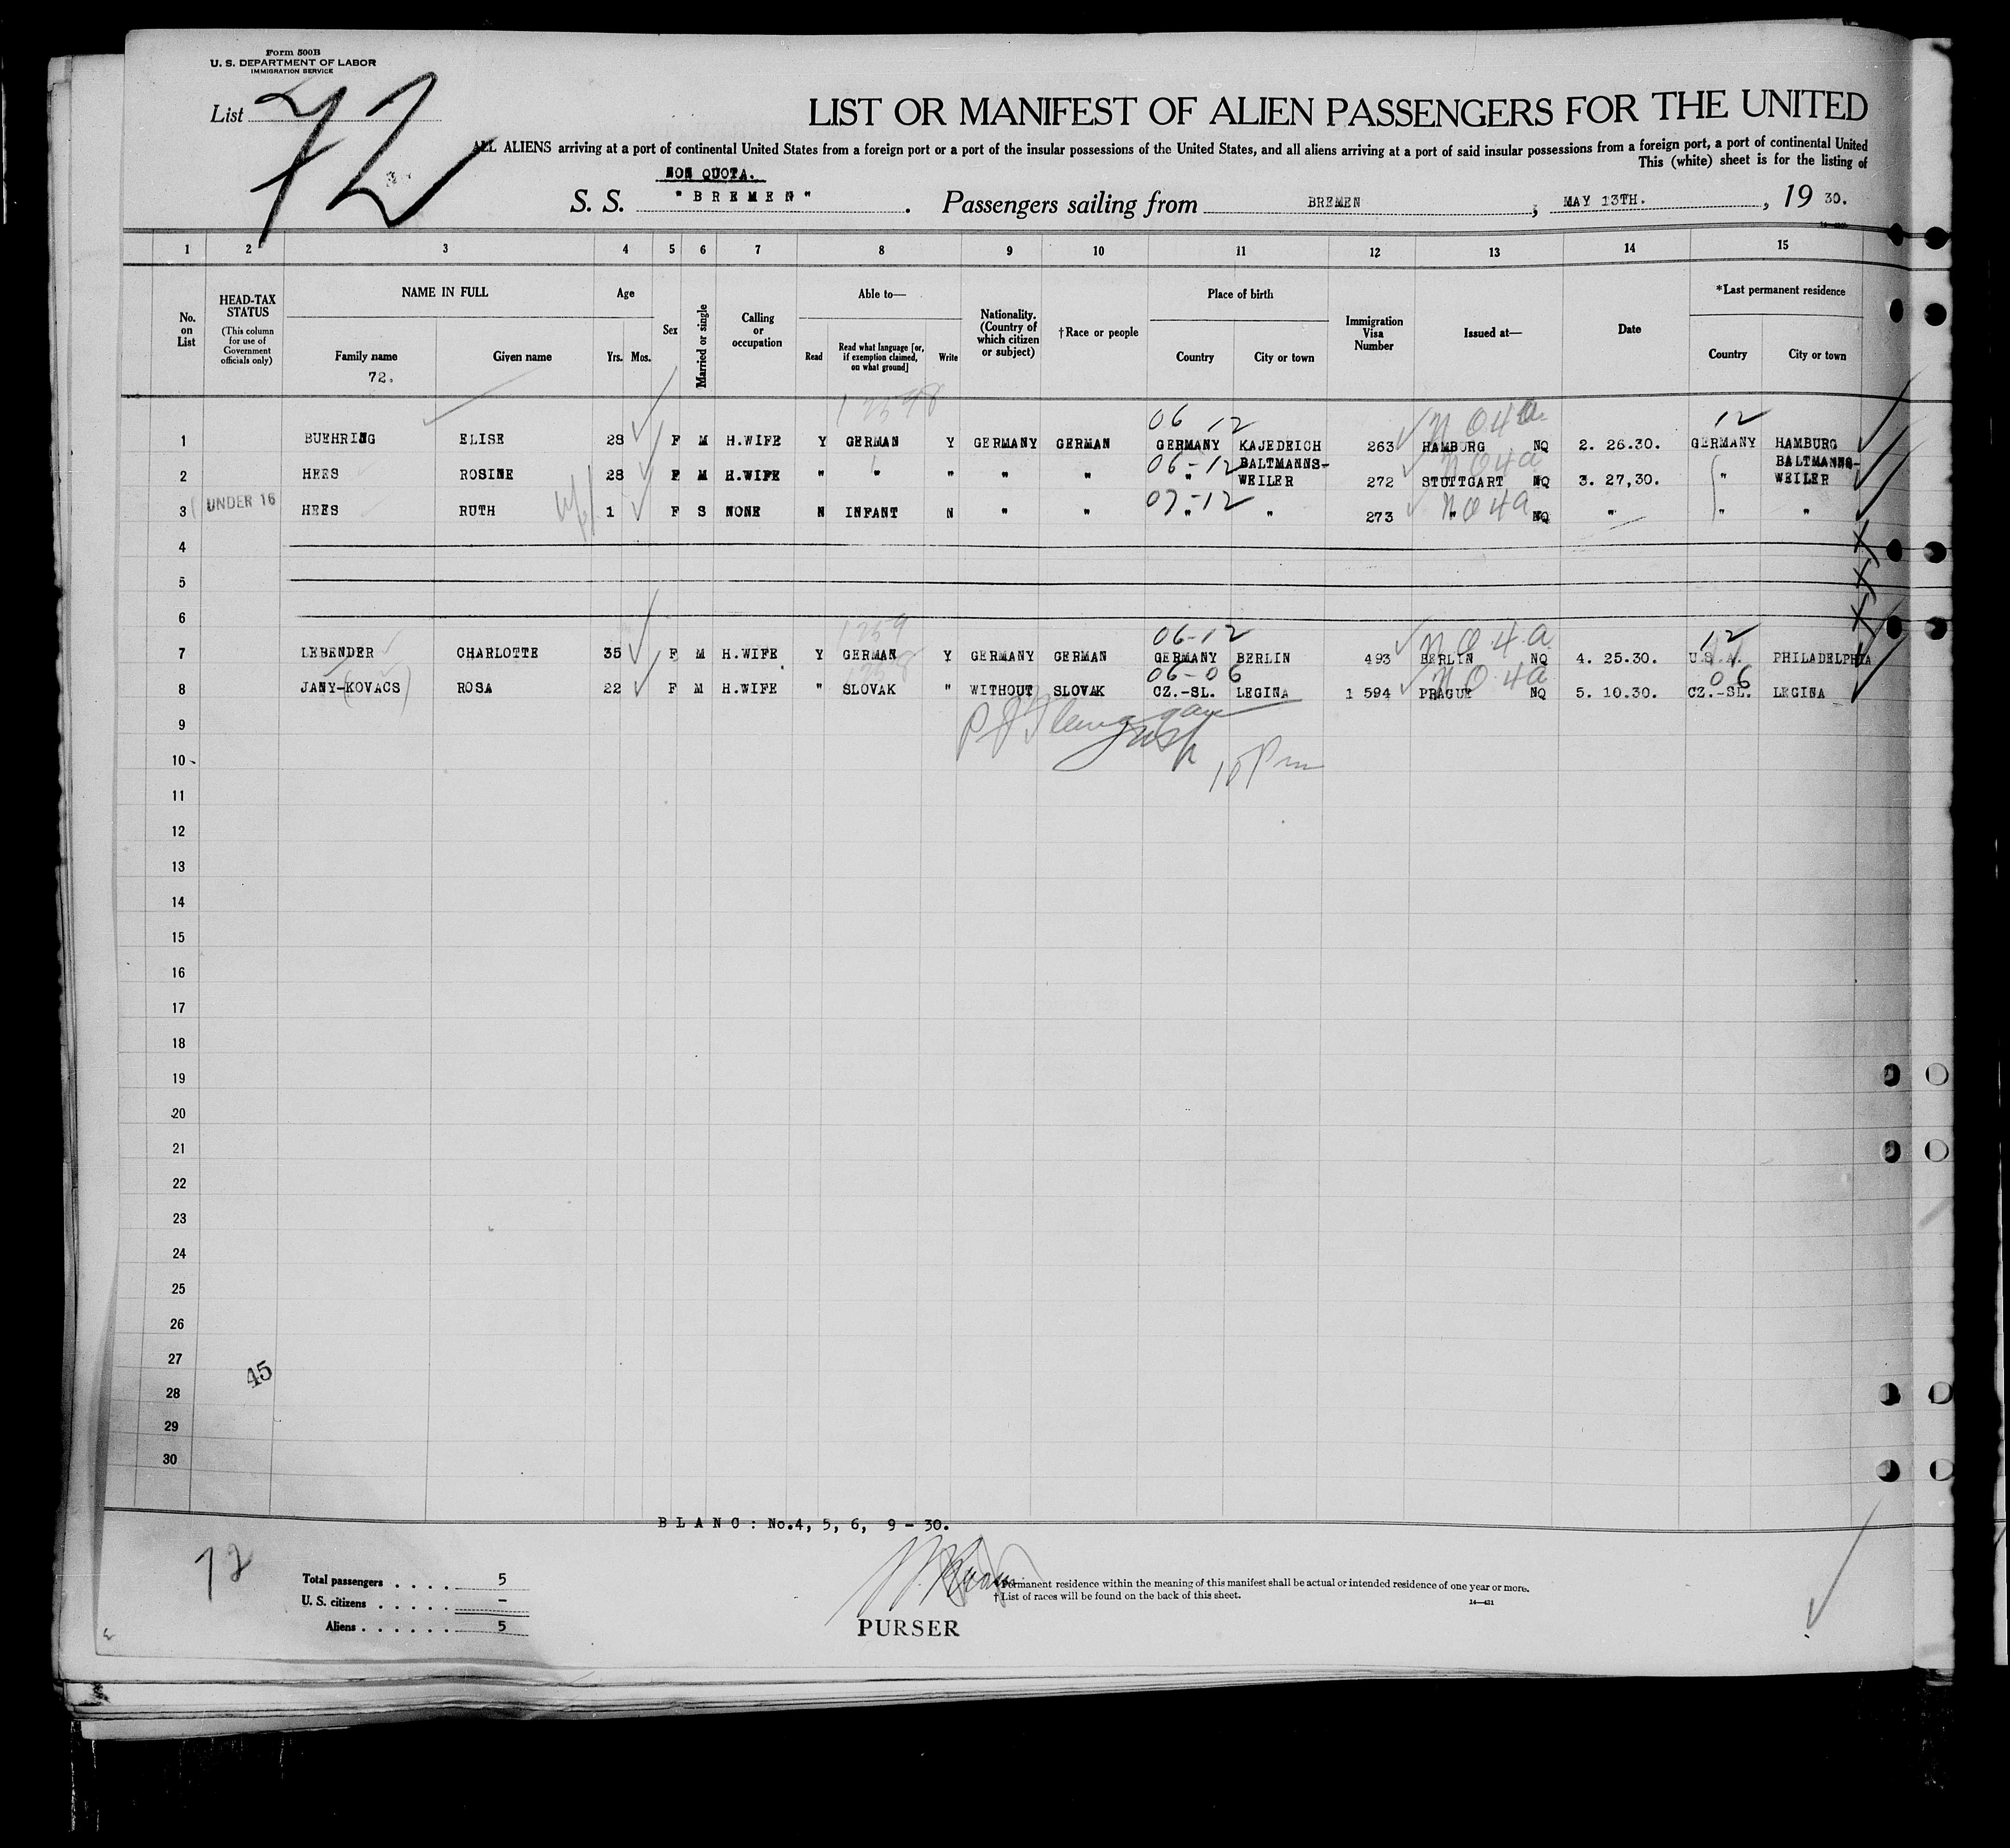 Form 500B
U. S. DEPARTMENT OF LABOR
IMMIGRATION SERVICE
List 72
LIST OR MANIFEST OF ALIEN PASSENGERS FOR THE UNITED
ALL ALIENS arriving at a port of continental United States from a foreign port or a port of the insular possessions of the United States, and all aliens arriving at a port of said insular possessions from a foreign port, a port of continental United
This (white) sheet is for the listing of
NON QUOTA.
S. S. "BREMEN". Passengers sailing from BREMEN, MAY 13TH., 19 30.
1 2 3 4 5 6 7 8 9 10 11 12 13 14 15
No. on List
HEAD-TAX STATUS
(This column for use of Government officials only)
NAME IN FULL
Family name
72.
Given name
Age
Yrs. Mos.
Sex
Married or single
Calling or occupation
Able to—
Read
Read what language [or, if exemption claimed, on what ground]
Write
Nationality. (Country of which citizen or subject)
†Race or people
Place of birth
Country
City or town
Immigration Visa Number
Issued at—
Date
*Last permanent residence
Country
City or town
06 12 NO4a 12
1 BUEHRING ELISE 28 F M H.WIFE Y GERMAN Y GERMANY GERMAN GERMANY KAJEDEICH 263 HAMBURG NQ 2. 26.30. GERMANY HAMBURG
06-12 BALTMANNS- NO4a BALTMANNS-
2 HEES ROSINE 28 F M H.WIFE " " " " " " WEILER 272 STUTTGART NQ 3. 27,30. " WEILER
07-12 NO4a
3 UNDER 16 HEES RUTH 1 F S NONE N INFANT N " " " " 273 " NQ " " "
4
5
6
06-12 NO4a 12
7 LEBENDER CHARLOTTE 35 F M H.WIFE Y GERMAN Y GERMANY GERMAN GERMANY BERLIN 493 BERLIN NQ 4. 25.30. U.S.A. PHILADELPHIA
06-06 NO4a 06
8 JANY-(KOVACS) ROSA 22 F M H.WIFE " SLOVAK " WITHOUT SLOVAK CZ.-SL. LEGINA 1 594 PRAGUE NQ 5. 10.30. CZ.-SL. LEGINA
9
10
11
12
13
14
15
16
17
18
19
20
21
22
23
24
25
26
27
45
28
29
30
BLANC: No.4, 5, 6, 9 - 30.
72
Total passengers . . . . 5
U. S. citizens . . . . . -
Aliens . . . . . . 5
PURSER
*Permanent residence within the meaning of this manifest shall be actual or intended residence of one year or more.
†List of races will be found on the back of this sheet.
14—421